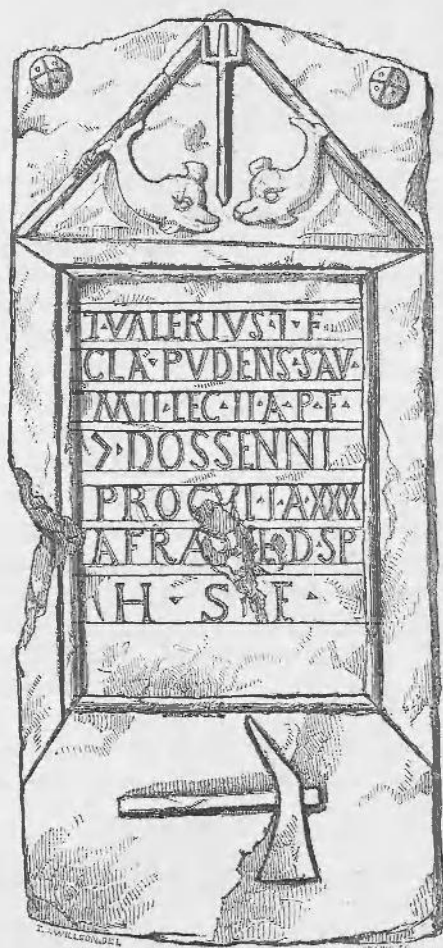 T·VALERIVS·T·F
CLA·PVDENS·SAV·
MIL·LEG·II·A·P·F·
>·DOSSENNI
PROCVLI·A·XXX
AERA D·SP
H·S·E·